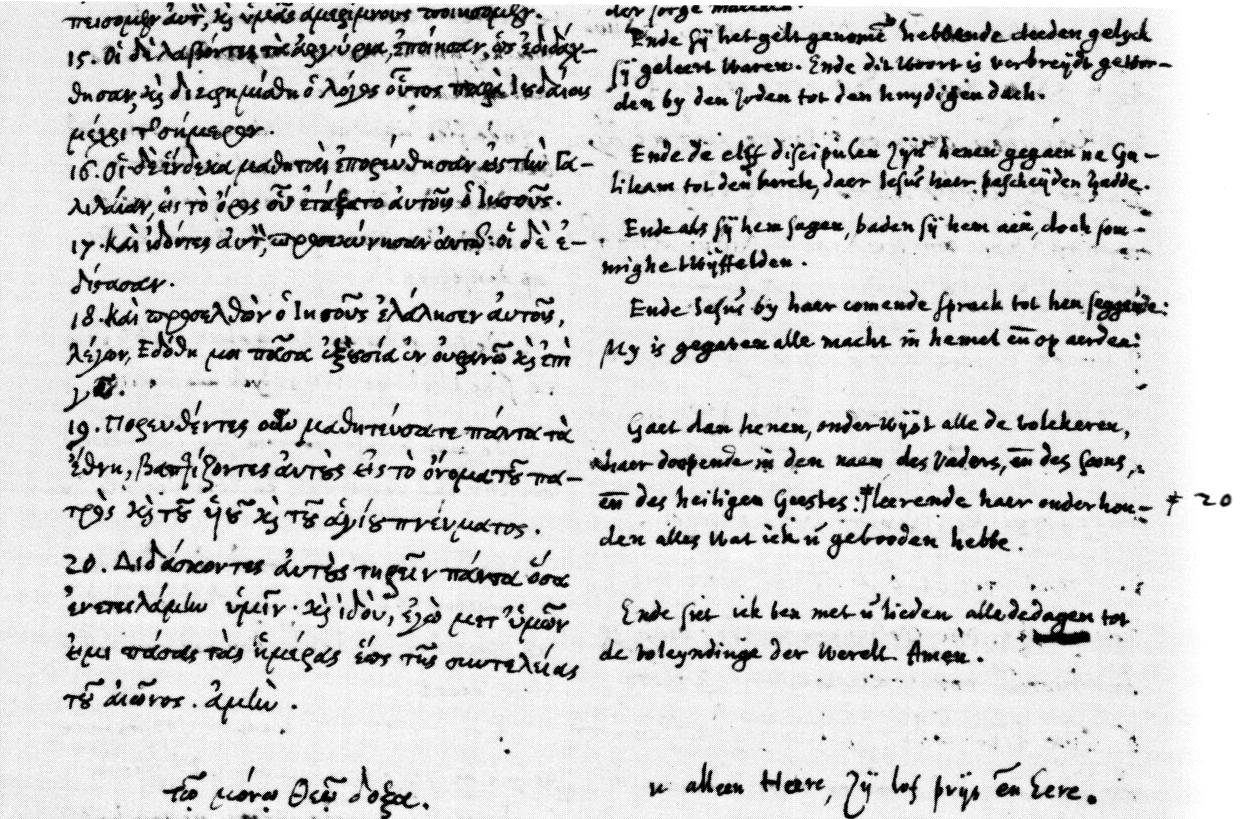 πεισομεν αυτὸν, κὶ ὑμᾶς ἀμερίμνους ποιήσομεν.
15. Οἱ δὲ λαβόντες τὰ ἀργύρια, ἐποίησαν, ὡς ἐδιδάχ-
θησαν, κὶ διεφημίσθη ὁ λόγος οὗτος παρὰ Ἰυδαίοις
μέχρι τῦ σήμερον.
16. Οἱ δὲ ἕνδεκα μαθηταὶ ἐπορεύθησαν εἰς τὴν Γα-
λιλαίαν, εἰς τὸ ὄρος οὗ ἐτάξατο αὐτοῖς ὁ Ἰησοῦς.
17. Καὶ ἰδόντες αὐτὸν, προσεκύνησαν αυτῷ: οἱ δὲ ἐ-
δίστασαν.
18. Καὶ προσελθὼν ὁ Ἰησοῦς ἐλάλησεν ἀυτοῖς,
λέγων, Ἐδόθη μοι πᾶσα ἐξυσία ἐν ουρανῷ κὶ ἐπὶ
γῆς.
19. Πορευθέντες οὖν μαθητεύσατε πάντα τὰ
ἔθνη, βαπτίζοντες ἀυτὺς εἰς τὸ ὄνομα τῦ πα-
τρὸς κὶ τῦ ὑιῦ κὶ τῦ ἁγίυ πνέυματος.
20. Διδάσκοντες ἀυτὺς τηρεῖν πάντα ὅσα
ἐνετειλάμην ὑμῖν· κὶ ἰδοὺ, ἐγὼ μετ' ὑμῶν
ειμι πάσας τὰς ἡμέρας ἕως τῆς συντελείας
τῦ ἀιῶνος. ἀμὴν.
τῷ μόνῳ Θεῷ δόξα.
der sorge maecken.
Ende sÿ het gelt genomē hebbende deeden gelyck
sÿ geleert waren. Ende dit woort is verbreÿdt gewor-
den by den Joden tot den huydigen dach.
Ende de elff discipulen zyn henen gegaen na Ga-
lileam tot den berch, daer Jesus haer bescheÿden hadde.
Ende als sÿ hem sagen, baden sÿ hem aen, doch som-
mighe twÿffelden.
Ende Jesus by haer comende sprack tot hen seggende:
My is gegeven alle macht in hemel en̄ op aerden:
Gaet dan henen, onderwÿst alle de volckeren,
haer doopende in den naem des Vaders, en̄ des soons,
en̄ des heiligen Geestes: ‡ leerende haer onderhou- ‡ 20
den alles wat ick ú gebooden hebbe.
Ende siet ick ben met ú lieden alle de dagen tot
de voleyndinge der werelt Amen.
u alleen Heere, Zÿ lof prÿs en̄ Eere.